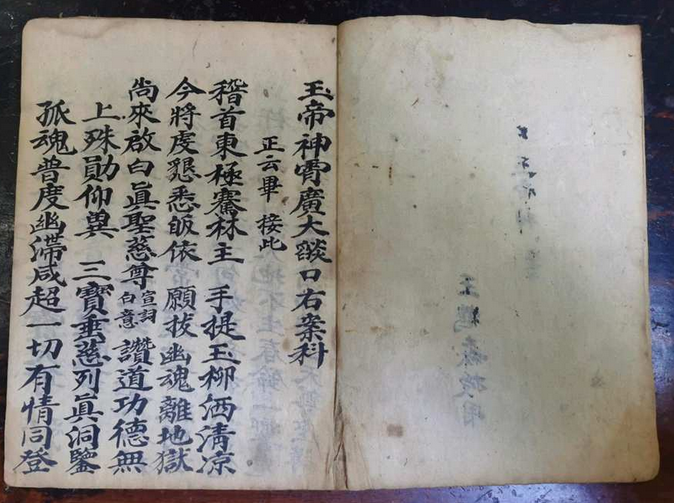 玉帝神霄廣大燄口右案科
正云畢 接此
稽首東極騫林主 手提玉柳洒清凉
今將虔懇悉皈依 願拔幽魂離地獄
尚來啟白眞聖慈尊 宣詞白意 讚道功德無
上殊勛仰奠 三寶垂慈列眞洞鑒
孤魂普度幽滯咸超一切有情同登